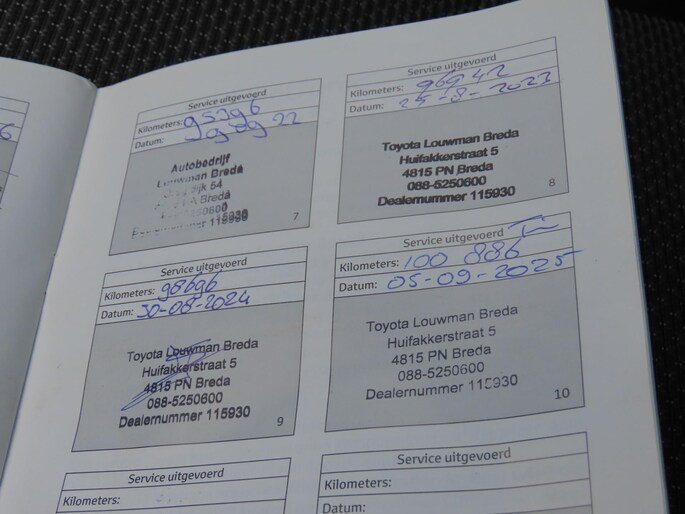 6
Service uitgevoerd
Kilometers: 95796
Datum:
Autobedrijf
Louwman Breda
54
Breda
0600
115930
7
Service uitgevoerd
Kilometers: 96942
Datum: 25-8-2023
Toyota Louwman Breda
Huifakkerstraat 5
4815 PN Breda
088-5250600
Dealernummer 115930
8
Service uitgevoerd
Kilometers: 98696
Datum: 30-08-2024
Toyota Louwman Breda
Huifakkerstraat 5
4815 PN Breda
088-5250600
Dealernummer 115930
9
Service uitgevoerd
Kilometers: 100 886
Datum: 05-09-2025
Toyota Louwman Breda
Huifakkerstraat 5
4815 PN Breda
088-5250600
Dealernummer 115930
10
Service uitgevoerd
Kilometers:
Service uitgevoerd
Kilometers:
Datum: